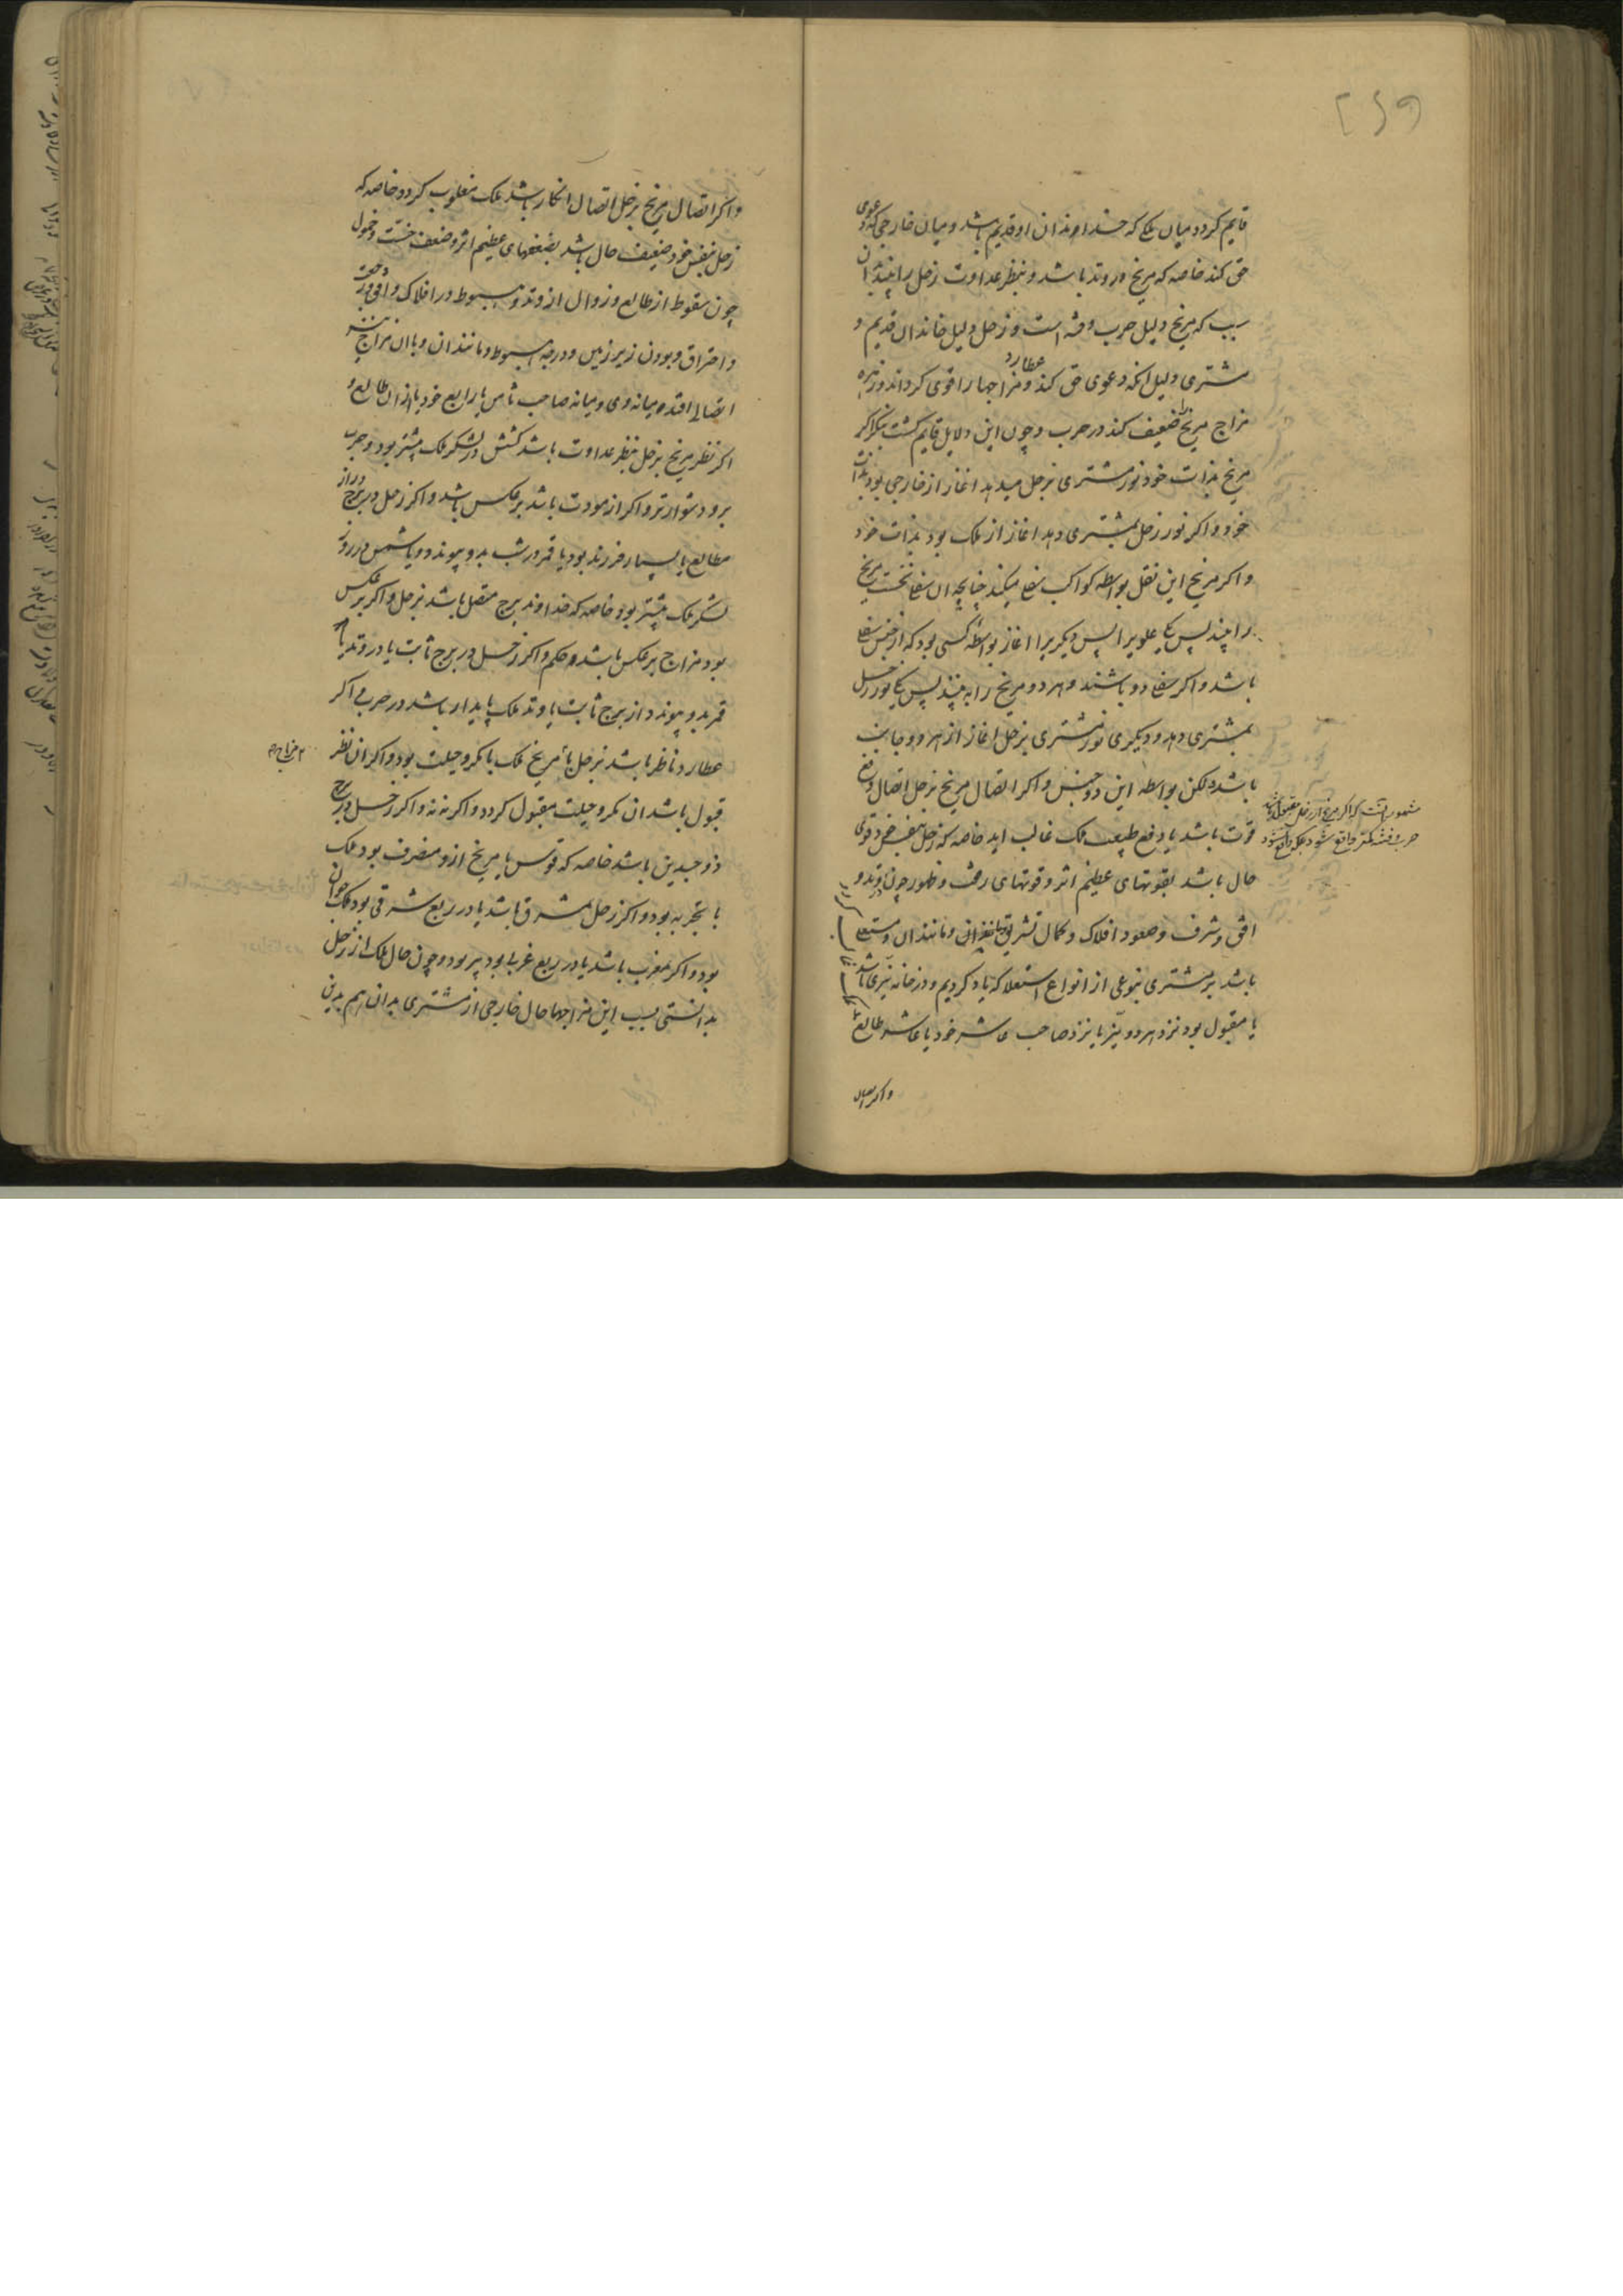 ۲۶۹
قایم کردد میان ملکی که خداوندان او قدیم باشد و میان خارجی که دعوی
حق کند خاصه که مریخ در وتد باشد و بنظر عداوت زحل را بیند از ان
سبب که مریخ دلیل حرب و فتنه است و زحل دلیل خاندان قدیم و
مشتری دلیل انکه دعوی حق کند و عطارد مزاجها را قوی کرداند و زهره
مزاج مریخ را ضعیف کند در حرب و چون این دلایل قایم کشت بنکر اکر
مریخ بذات خود نور مشتری بزحل میدهد اغاز از خارجی بود بذات
خود و اکر نور زحل بمشتری دهد اغاز از ملک بود بذات خود
و اکر مریخ این نقل بواسطه کواکب سفلی میکند چنانچه ان سفلی نخست مریخ
را بیند پس یکی علویرا پس دیکریرا اغاز بواسطه کسی بود که از جنس سفلی
باشد و اکر سفلی دو باشند و هر دو مریخ را به بینند پس یکی نور زحل
بمشتری دهد و دیکری نور مشتری بزحل اغاز از هر دو جانب
باشد ولکن بواسطه این دو جنس و اکر اتصال مریخ بزحل اتصال دفع
قوت باشد یا دفع طبیعت ملک غالب اید خاصه که زحل بنفس خود قوی
حال باشد بقوتهای عظیم اثر و قوتهای رفعت و ظهور چون وتد و
افق و شرف و صعود افلاک و کمال تشریق و مانند ان و مستعلی
باشد بر مشتری بنوعی از انواع استعلا که یاد کردیم و در خانه نیری باشد
یا مقبول بود نزد هر دو نیر یا نزد صاحب عاشر خود یا عاشر طالع
و اکر اتصال
مشهور انست که اکر مریخ از زحل مقبول باشد
حرب و فتنه کمتر واقع شود
و اکر اتصال مریخ بزحل اتصال انکار باشد ملک مغلوب کردد خاصه که
زحل بنفس خود ضعیف حال باشد بضعفهای عظیم اثر و ضعف خست و خمول
چون سقوط از طالع و زوال از وتد و هبوط در افلاک و افق و رجعت
و احتراق و بودن زیر زمین و درجه هبوط و مانند ان و با ان مزاج
اتصالی افتد میانه وی و میانه صاحب ثامن یا رابع خود یا از ان طالع و
اکر نظر مریخ بزحل بنظر عداوت باشد کشش در لشکر ملک بیشتر بود و حرب
برو دشوارتر و اکر از مودت باشد برعکس باشد و اکر زحل در برج دراز
مطالع یا بسیار فرزند بود یا قمر در شب بدو پیوندد و یا شمس در روز
لشکر ملک بیشتر بود خاصه که خداوند برج متصل باشد بزحل و اکر برعکس
بود مزاج برعکس باشد و حکم و اکر زحل در برج ثابت یا در وتد یا
قمر بدو پیوندد از برج ثابت یا وتد ملک پایدار باشد در حرب و اکر
عطارد ناظر باشد بزحل یا مریخ ملک با مکر و حیلت بود و اکر ان نظر
قبول باشد ان مکر و حیلت مقبول کردد و اکر نه نه و اکر زحل در برج
ذو جسدین باشد خاصه که قوس یا مریخ ازو منصرف بود ملک
با تجربه بود و اکر زحل بمشرق باشد یا در ربع شرقی بود ملک جوان
بود و اکر بمغرب باشد یا در ربع غربی بود پیر بود و چون حال ملک از زحل
بدانستی بسبب این مزاجها حال خارجی از مشتری بدان هم بدین